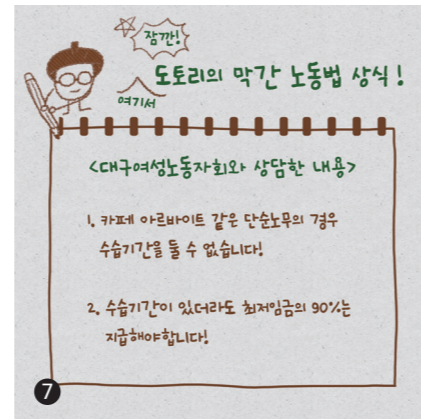 잠깐!
여기서
도토리의 막간 노동법 상식!
<대구여성노동자회와 상담한 내용>
1. 카페 아르바이트 같은 단순노무의 경우
수습기간을 둘 수 없습니다!
2. 수습기간이 있더라도 최저임금의 90%는
지급해야합니다!
7